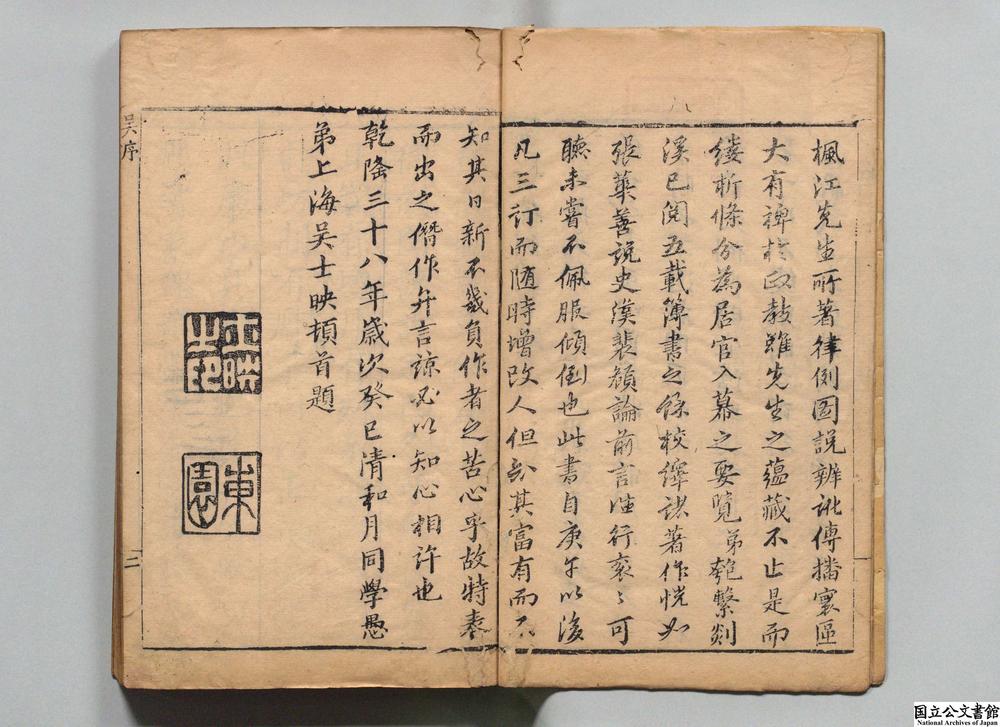 楓江先生所著律例圖說辨訛傳播寰區
大有裨於政教雖先生之蘊藏不止是而
縷析條分為居官入幕之要覽弟匏繫剡
溪已閱五載簿書之餘校繹諸著作恍如
張華善說史漢裴頠論前言往行衮〻可
聽未嘗不佩服傾倒也此書自庚午以後
凡三訂而随時增改人但知其富有而不
知其日新不幾負作者之苦心乎故特表
而出之僭作弁言諒必以知心相許也
乾隆三十八年歲次癸巳清和月同學愚
弟上海吳士映頓首題
吳序
三
東園
国立公文書館
National Archives of Japan